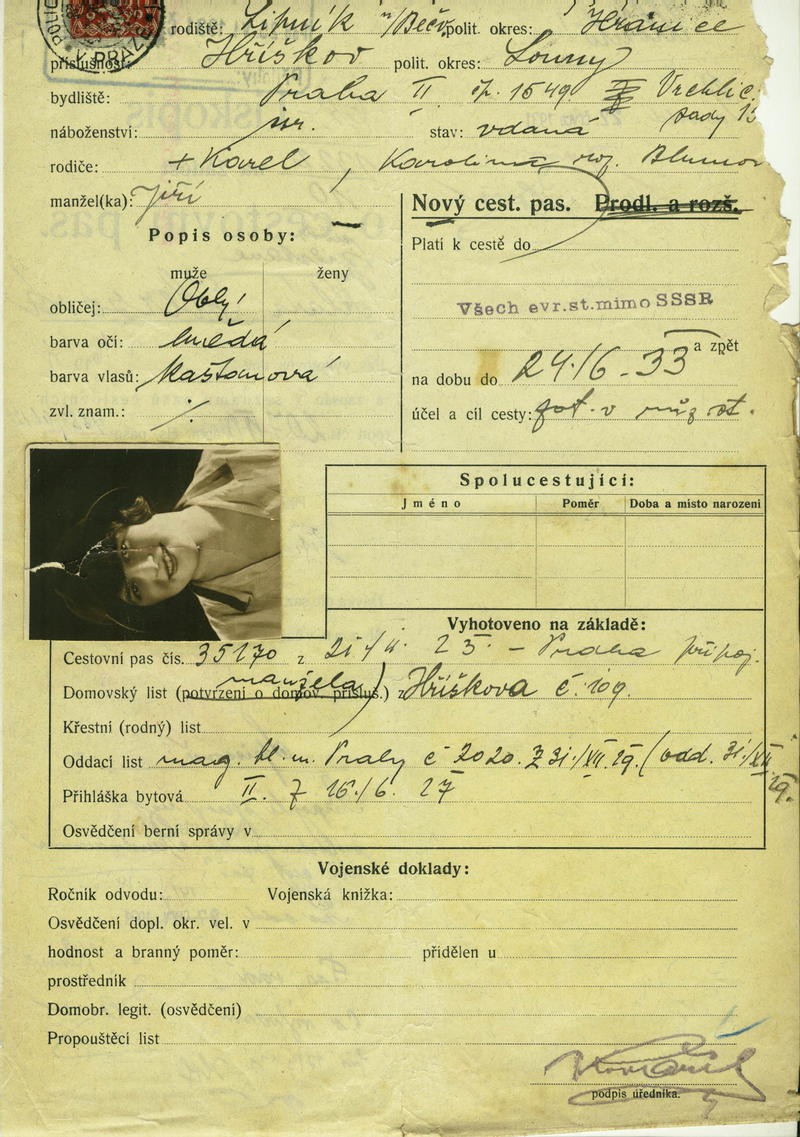 POLIC
V PRAZE
rodiště: Lipník n/Beč. polit. okres: Hranice
příslušnost: Hříškov polit. okres: Louny
bydliště: Praha II čp. 1549. Vrchlic.
sady 12
náboženství: isr. stav: vdaná
rodiče: + Karel, Karolina roz. Blumov
manžel(ka): Jiří
Nový cest. pas. Prodl. a rozš.
Popis osoby:
Platí k cestě do
muže ženy
Všech evr.st.mimo SSSR
obličej: Oblý
barva očí: hnědá
a zpět
barva vlasů: kaštanová
na dobu do 24./6. 33
zvl. znam.: ./.
účel a cíl cesty: pot. v růz. st.
Spolucestující:
Jméno Poměr Doba a místo narození
Vyhotoveno na základě:
Cestovní pas čís. 35170 z 25 - Praha připoj.
manžela
Domovský list (potvrzení o domov. přísluš.) z Hříškova č. 109.
Křestní (rodný) list
Oddací list mag. hl. m. Prahy č 2020. z 31./XII. 19. (odd. 31./XII.
19.
Přihláška bytová II. z 16./6. 27
Osvědčení berní správy v
Vojenské doklady:
Ročník odvodu: Vojenská knížka:
Osvědčení dopl. okr. vel. v
hodnost a branný poměr: přidělen u
prostředník
Domobr. legit. (osvědčení)
Propouštěcí list
podpis úředníka.